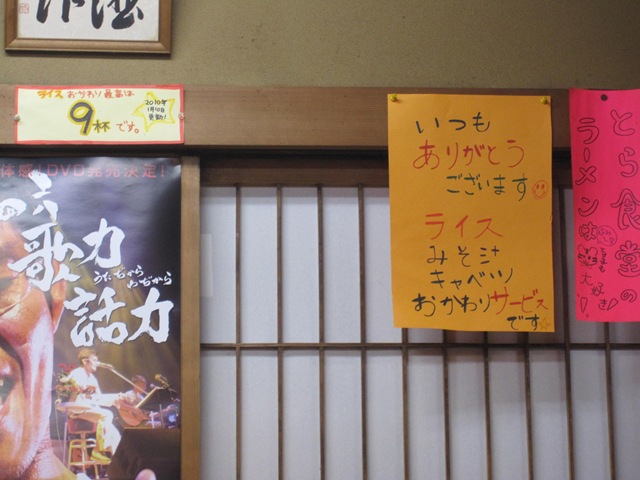 ライス おかわり最高は
9杯です。
2010年
1月10日
更新!
体感!DVD発売決定!
歌力
うたぢから
わぢから
話力
いつも
ありがとう
ございます
ライス
みそ汁
キャベツ
おかわりサービス
です
とら食堂の
ラーメンは
大好き!